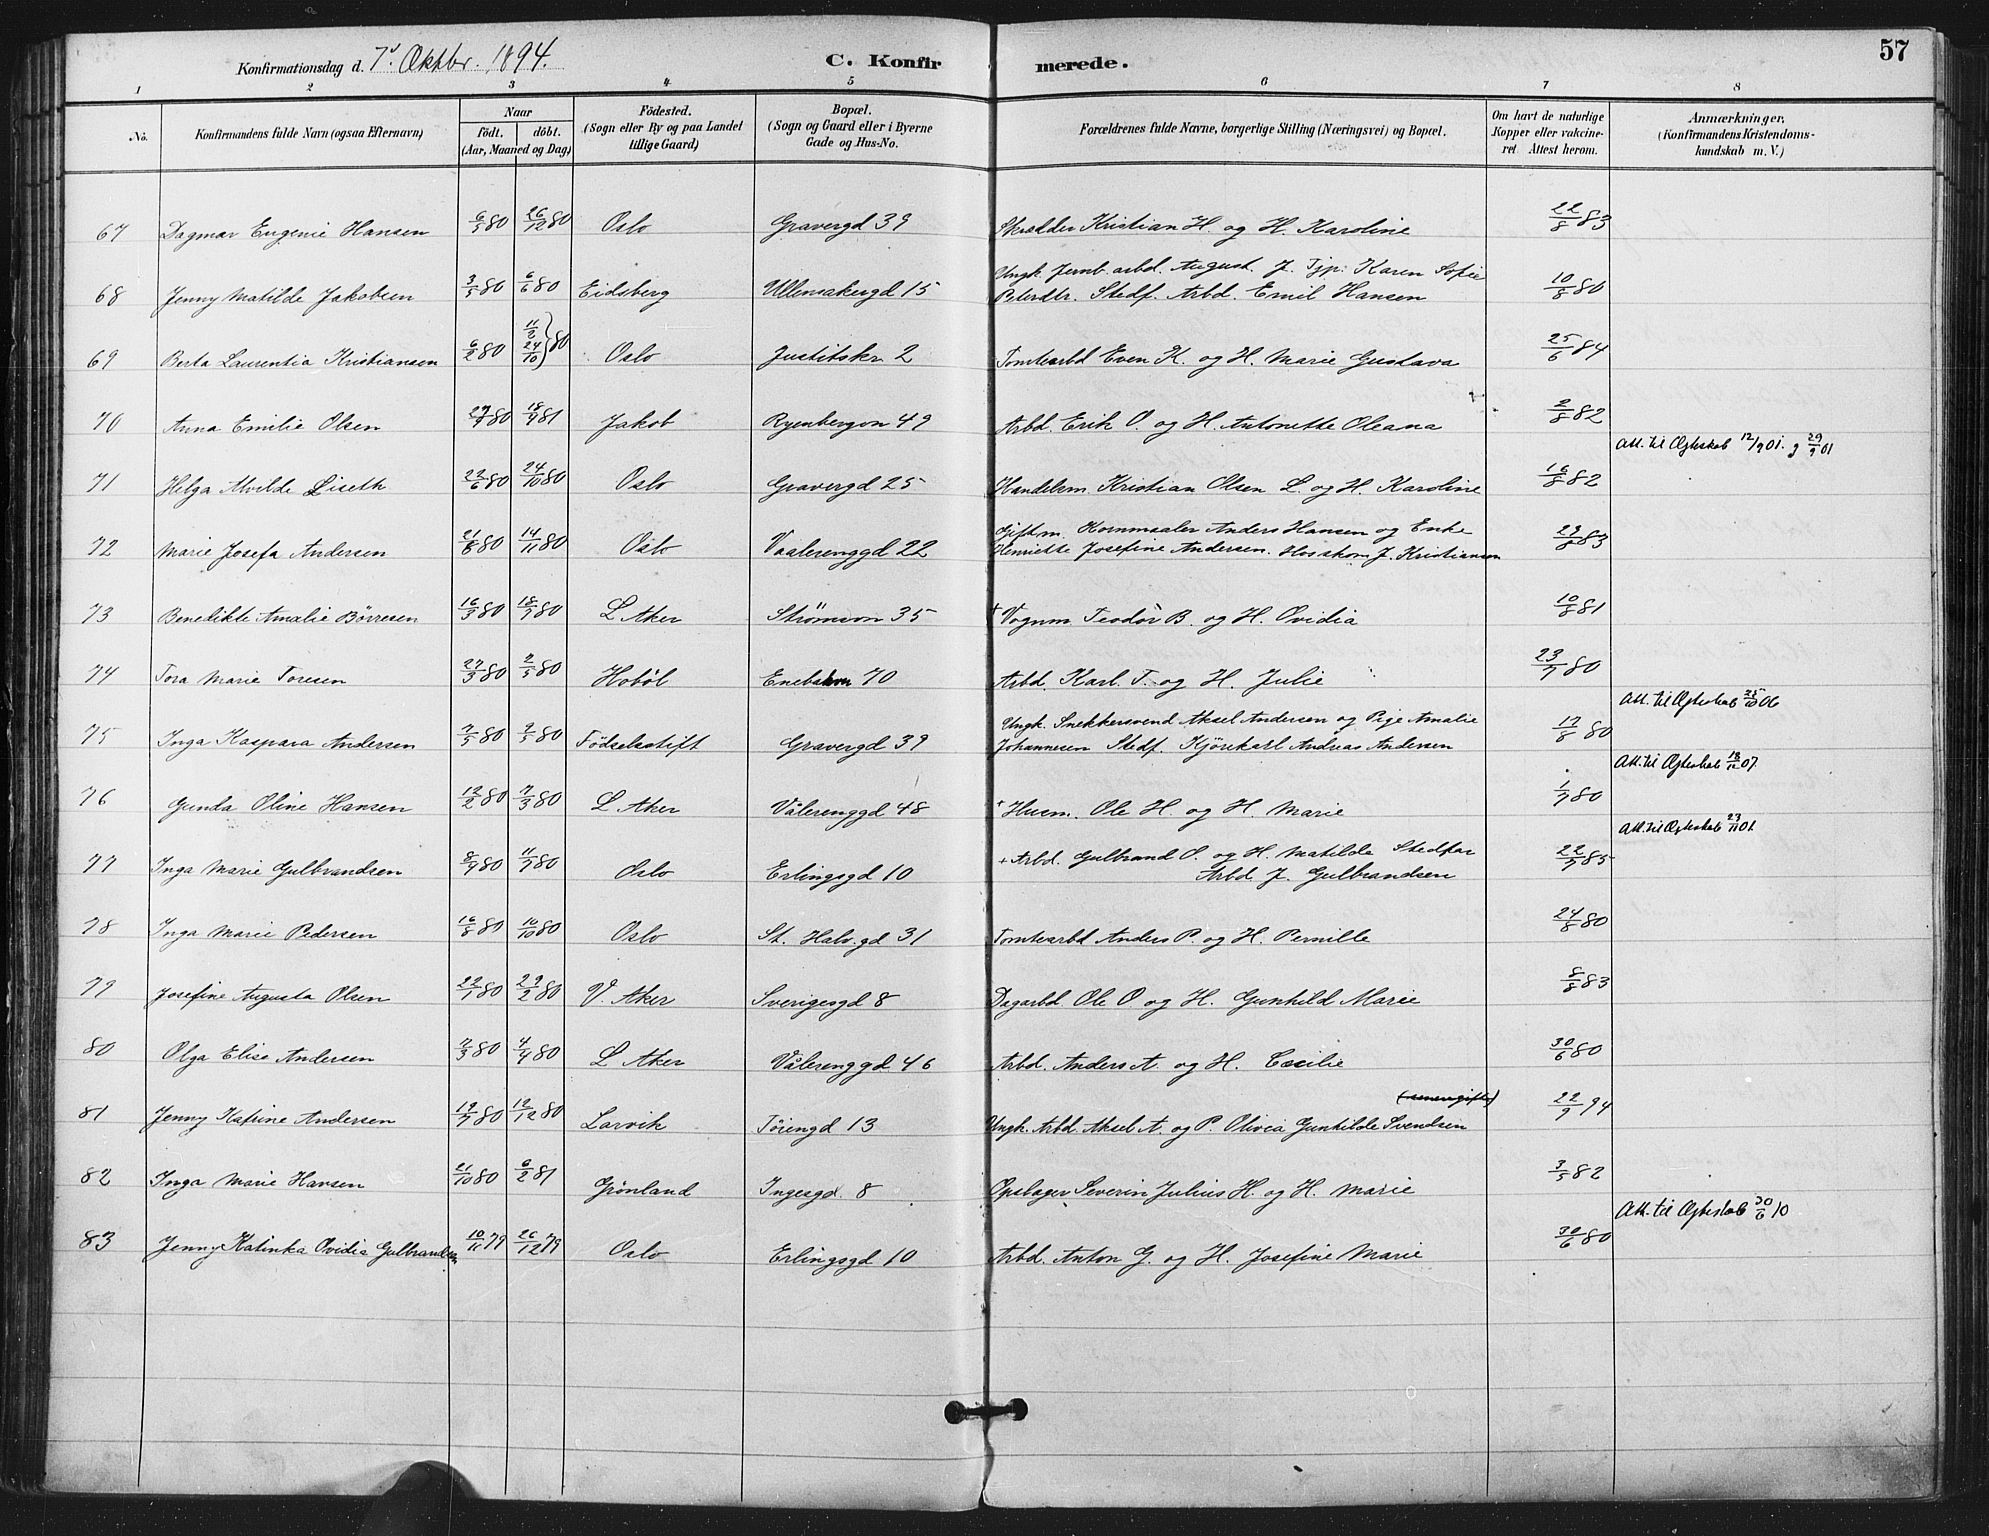 Konfirmationsdag d. 7' Oktbr. 1894. C. Konfirmerede. 57
1 2 3 4 5 6 7 8
No. Konfirmandens fulde Navn (ogsaa Efternavn) Naar født. døbt. (Aar, Maaned og Dag) Fødested. (Sogn eller By og paa Landet tillige Gaard) Bopæl. (Sogn og Gaard eller i Byerne Gade og Hus-No. Forældrenes fulde Navne, borgerlige Stilling (Næringsvei) og Bopæl. Om havt de naturlige Kopper eller vakcineret. Attest herom. Anmærkninger. (Konfirmandens Kristendomskundskab m. V.)
67 Dagmar Eugenie Hansen 6/5 80 26/12 80 Oslo Gravergd 39 Skrædder Kristian H. og H. Karoline 22/8 83
68 Jenny Matilde Jakobsen 3/5 80 6/6 80 Eidsberg Ullensakergd 15 Ungk. Jernb.arbd. August J. Tjp. Karen Sofie
Petersdtr. Stedf. Arbd. Emil Hansen 10/8 80
69 Berta Laurentia Kristiansen 6/2 80 11/2 24/10 } 80 Oslo Justitskr 2 Tomtearbd Even K. og H. Marie Gustava 25/6 84
70 Anna Emilie Olsen 27/9 80 18/9 81 Jakob Ryenbergvn 49 Arbd. Erik O. og H. Antonette Oleana 2/8 82
Att. til Ægteskab 12/9 01. g 29/9 01
71 Helga Alvilde Liseth 22/6 80 24/10 80 Oslo Gravergd 25 Handelsm. Kristian Olsen L. og H. Karoline 16/8 82
72 Marie Josefa Andersen 21/8 80 14/11 80 Oslo Vaalerenggd 22 Giftm. Kornmaaler Anders Hansen og Enke
Henriette Josefine Andersen. Hos skom J. Kristiansen 29/8 83
73 Benedikte Amalie Børresen 16/3 80 18/7 80 L Aker Strömsvn 35 + Vognm. Teodor B. og H. Ovidia 10/8 81
74 Tora Marie Toresen 27/3 80 2/5 80 Hobøl Enebakvn 70 Arbd. Karl T. og H. Julie 23/7 80
Att. til Ægteskab 25/10 06
75 Inga Kaspara Andersen 7/5 80 9/5 80 Fødselsstift Gravergd 39 Ungk. Snekkersvend Aksel Andersen og Pige Amalie
Johannesen Stedf. Kjørekarl Andreas Andersen 17/8 80
Att. til Ægteskab 18/12 07.
76 Gunda Oline Hansen 12/2 80 7/3 80 L. Aker Vålerenggd 48 + Husm. Ole H. og H. Marie 1/7 80
Att. til Ægteskab 23/11 01.
77 Inga Marie Gulbrandsen 8/4 80 11/7 80 Oslo Erlingsgd 10 + Arbd. Gulbrand O. og H. Matilde Stedfar
Arbd. J. Gulbrandsen 22/7 85
78 Inga Marie Pedersen 16/8 80 10/10 80 Oslo St. Halv.gd 31 Tomtearbd Anders P. og H. Pernille 24/8 80
79 Josefine Augusta Olsen 22/1 80 29/2 80 V. Aker Sverigesgd 8 Dagarbd Ole O. og H. Gunhild Marie 8/8 83
80 Olga Elise Andersen 7/3 80 4/4 80 L Aker Vålerenggd. 46 Arbd. Anders A. og H. Cecilie 30/6 80
81 Jenny Katrine Andersen 19/7 80 12/12 80 Larvik Töiengd 13 Ungk. Arbd. Aksel A. og P. Olivia Gunhilde Svendsen (senere gifte) 22/9 94
82 Inga Marie Hansen 21/10 80 6/2 81 Grönland Ingesgd. 8 Opslager Severin Julius H. og H. Marie 3/5 82
Att. til Ægteskab 30/6 10
83 Jenny Katinka Ovidia Gulbrandsen 10/11 79 26/12 79 Oslo Erlingsgd 10 Arbd. Anton G. og H. Josefine Marie 30/6 80